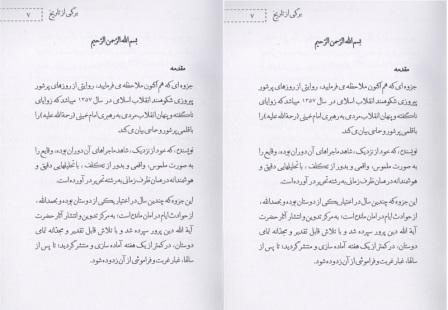 برگی از تاریخ
۷
بسم الله الرحمن الرحیم
مقدمه
جزوه ای که هم اکنون ملاحظه می فرمایید، روایتی از روزهای پرشور
پیروزی شکوهمند انقلاب اسلامی در سال ۱۳۵۷ میباشد که زوایای
ناگفته و پنهان انقلاب مردمی به رهبری امام خمینی (رحمة الله علیه) را
با قلمی پرشور و حماسی بیان می کند.
نویسنده، که خود از نزدیک، شاهد ماجراهای آن دوران بوده، وقایع را
به صورت ملموس، واقعی و بدور از تکلف، با تحلیلهایی دقیق و
هوشمندانه در همان ظرف زمانی به رشته تحریر در آورده است.
این جزوه که چندین سال در اختیار یکی از دوستان بوده و بحمدالله،
از حوادث ایام در امان مانده است؛ به مرکز تدوین و انتشار آثار حضرت
آیة الله دین پرور سپرده شد و با تلاش قابل تقدیر و مجدانه تمامی
دوستان، در کمتر از یک هفته آماده سازی و منتشر گردید؛ تا پس از
سالها، غبار غربت و فراموشی از آن زدوده شود.
برگی از تاریخ
۷
بسم الله الرحمن الرحیم
مقدمه
جزوه ای که هم اکنون ملاحظه می فرمایید، روایتی از روزهای پرشور
پیروزی شکوهمند انقلاب اسلامی در سال ۱۳۵۷ میباشد که زوایای
ناگفته و پنهان انقلاب مردمی به رهبری امام خمینی (رحمة الله علیه) را
با قلمی پرشور و حماسی بیان می کند.
نویسنده، که خود از نزدیک، شاهد ماجراهای آن دوران بوده، وقایع را
به صورت ملموس، واقعی و بدور از تکلف، با تحلیلهایی دقیق و
هوشمندانه در همان ظرف زمانی به رشته تحریر در آورده است.
این جزوه که چندین سال در اختیار یکی از دوستان بوده و بحمدالله،
از حوادث ایام در امان مانده است؛ به مرکز تدوین و انتشار آثار حضرت
آیة الله دین پرور سپرده شد و با تلاش قابل تقدیر و مجدانه تمامی
دوستان، در کمتر از یک هفته آماده سازی و منتشر گردید؛ تا پس از
سالها، غبار غربت و فراموشی از آن زدوده شود.